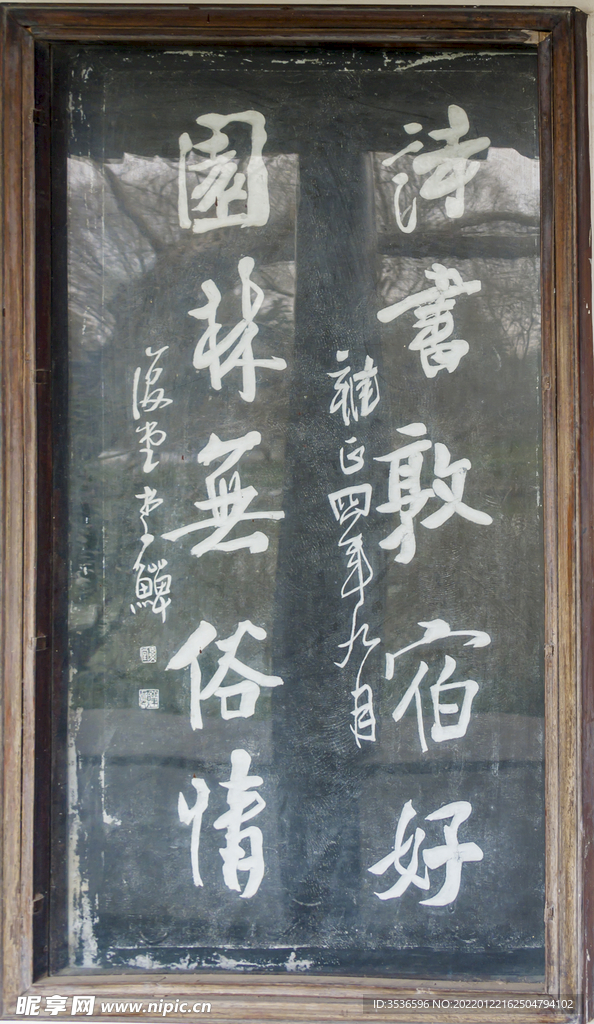 詩書敦宿好
雍正四年九月
園林無俗情
復堂李鱓
昵享网 www.nipic.cn
ID:3536596 NO:20220122162504794102